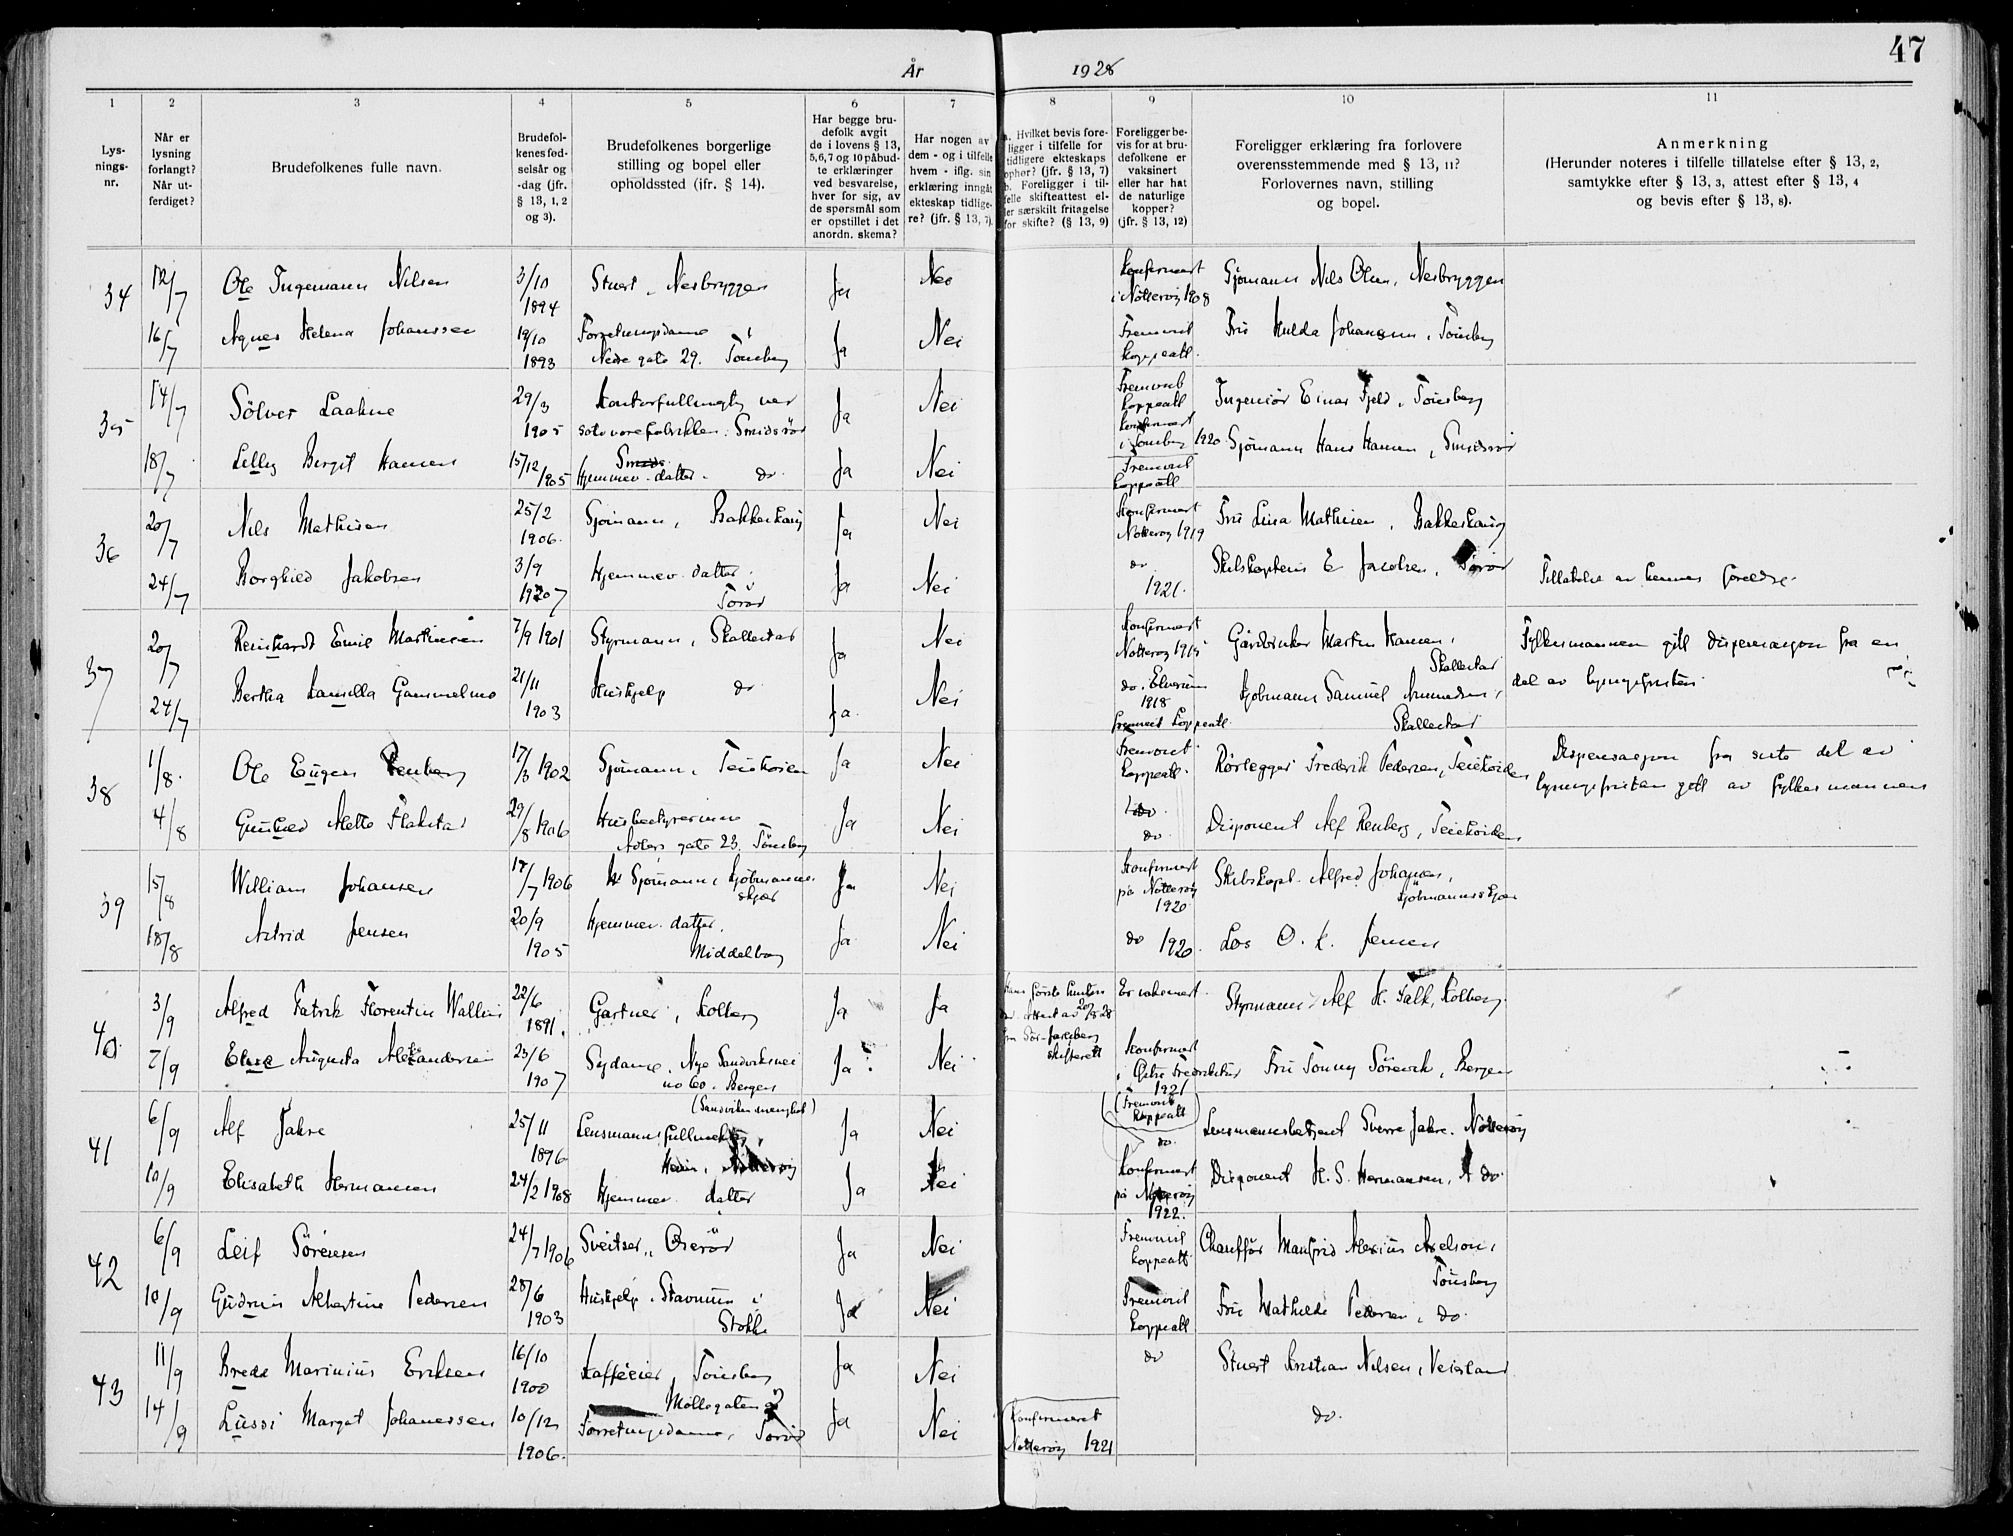 47
År 1928
1 2 3 4 5 6 7 8 9 10 11
Lys-
nings-
nr.
Når er
lysning
forlangt?
Når ut-
ferdiget?
Brudefolkenes fulle navn.
Brudefol-
kenes fød-
selsår og
-dag (jfr.
§ 13, 1, 2
og 3).
Brudefolkenes borgerlige
stilling og bopel eller
opholdssted (jfr. § 14).
Har begge bru-
defolk avgit
de i lovens § 13,
5,6,7 og 10 påbud-
te erklæringer
ved besvarelse,
hver for sig, av
de spørsmål som
er opstillet i det
anordn. skema?
Har nogen av
dem - og i tilfelle
hvem - iflg. sin
erklæring inngåt
ekteskap tidlige-
re? (jfr. § 13, 7).
a. Hvilket bevis fore-
ligger i tilfelle for
tidligere ekteskaps
ophør? (jfr. § 13, 7)
b. Foreligger i til-
felle skifteattest el-
ler særskilt fritagelse
for skifte? (§ 13, 9)
Foreligger be-
vis for at bru-
defolkene er
vaksinert
eller har hat
de naturlige
kopper?
(jfr. § 13, 12)
Foreligger erklæring fra forlovere
overensstemmende med § 13, 11?
Forlovernes navn, stilling
og bopel.
Anmerkning
(Herunder noteres i tilfelle tillatelse efter § 13, 2,
samtykke efter § 13, 3, attest efter § 13, 4
og bevis efter § 13, 8).
34 12/7 Ole Ingemann Nilsen 3/10 1894 Stuert, Nesbryggen Ja Nei Konfirmert i Nøtterøy 1908 Sjømann Nils Olsen, Nesbryggen
16/7 Agnes Helena Johanssen 19/10 1893 Forretningsdame Nedre gate 29. Tönsberg Ja Nei Fremvist koppeatt. Fru Hulda Johansen, Tönsberg
35 14/7 Sölver Laahne 29/3 1905 Kontorfullmegtig ved Smidsrød Ja Nei Fremvist koppeatt Ingeniør Einar Fjeld, Tönsberg
konfirmert i Tönsberg 1920
18/7 Lilly Bergit Hansen 15/12 1905 Hjemmev. datter. do. Ja Nei Fremvist koppeatt Sjømann Hans Hansen, Smidsrød
36 20/7 Nils Mathisen 25/2 1906. Sjømann, Bakkeskaug Ja Nei Konfirmert Nøtterøy 1919 Fru Lina Mathisen, Bakkeskaug
24/7 Borghild Jakobsen 3/9 1907 Hjemmev. datter, Torød Ja Nei do 1921. Skibskaptein E Jacobsen, Torød Tillatelse av hennes foreldre.
37 20/7 Reinhardt Emil Martinsen 7/9 1901 Styrmann, Skallestad Ja Nei Konfirmert Nøtterøy 1915 Gårdbruker Martin Hansen, Skallestad Fylkesmannen gitt dispensasjon fra en
del av lysningsfristen.
24/7 Bertha Kamilla Gammelmo 21/11 1903 Hushjelp do Ja. Nei do. Elverum 1918 fremvist koppeatt. Kjøbmann Samuel Amundsen, Skallestad
38 1/8. Ole Eugen Renberg 17/3 1902 Sjømann, Teieskoien Ja Nei Fremvist koppeatt. Rørlegger Frederik Pedersen, Teieskoiden Dispensasjon fra siste del av
lysningsfristen gitt av fylkesmannen
4/8 Gunhild Alette Flakstad 29/8 1906 Husbestyrerinne Anders gate 23. Tönsberg Ja Nei do Disponent Alf Renberg, Teieskoiden
39 15/8 William Johansen 17/7 1906 Sjømann, Kjøbmannskjær Ja Nei Konfirmert på Nøtterøy 1920 Skibskapt. Alfred Johansen, Kjöbmannsskjær
18/8 Astrid Jensen 20/9 1905 Hjemmev. datter. Middelborg Ja Nei do 1920. Los O. K. Jensen
40 3/9 Alfred Patrik Florentin Wallin 22/6 1891. Gartner, Kolberg Ja Ja Hans første hustru død. Attest av 20/8 28 fra Sør-Jarlsberg skifterett Er vaksinert. Styrmann Alf H. Falk, Kolberg
7/9 Elna Augusta Aleksandersen 23/6 1907 Sydame, Nye Sandviksvei no 60. Bergen (Sandviken menighet) Ja Nei Konfirmert i Østre Fredrikstad 1921 (Fremvist koppeatt) Fru Tonny Sörevik, Bergen
41 6/9 Alf Jahre 25/11 1896 Lensmannsfullmektig, Hein, Nøtterøy Ja Nei do. Lensmannsbetjent Sverre Jahre. Nøtterøy
10/9 Elisabeth Hermansen 24/2 1908 Hjemmev. datter Ja Nei Konfirmert på Nøtterøy 1922. Disponent H. S. Hermansen, do.
42 6/9 Leif Sörensen 24/7 1906 Sveitser, Oserød Ja Nei Fremvist koppeatt Chauffør Manfrid Alexius Axelson, Tönsberg
10/9 Gudrun Albertine Pedersen 28/6 1903 Hushjelp, Stavnum i Stokke Ja Nei Fremvist koppeatt Fru Mathilde Pedersen, do.
43 11/9 Brede Marinius Eriksen 16/10 1900 Kafféeier Tönsberg Møllegaten 3 Ja Nei do Stuert Kristian Nilsen, Veierland
14/9 Lussi Margot Johanessen 10/12 1906. Forretningsdame, Torød Ja Nei Konfirmeret Nøtterøy 1921 do.